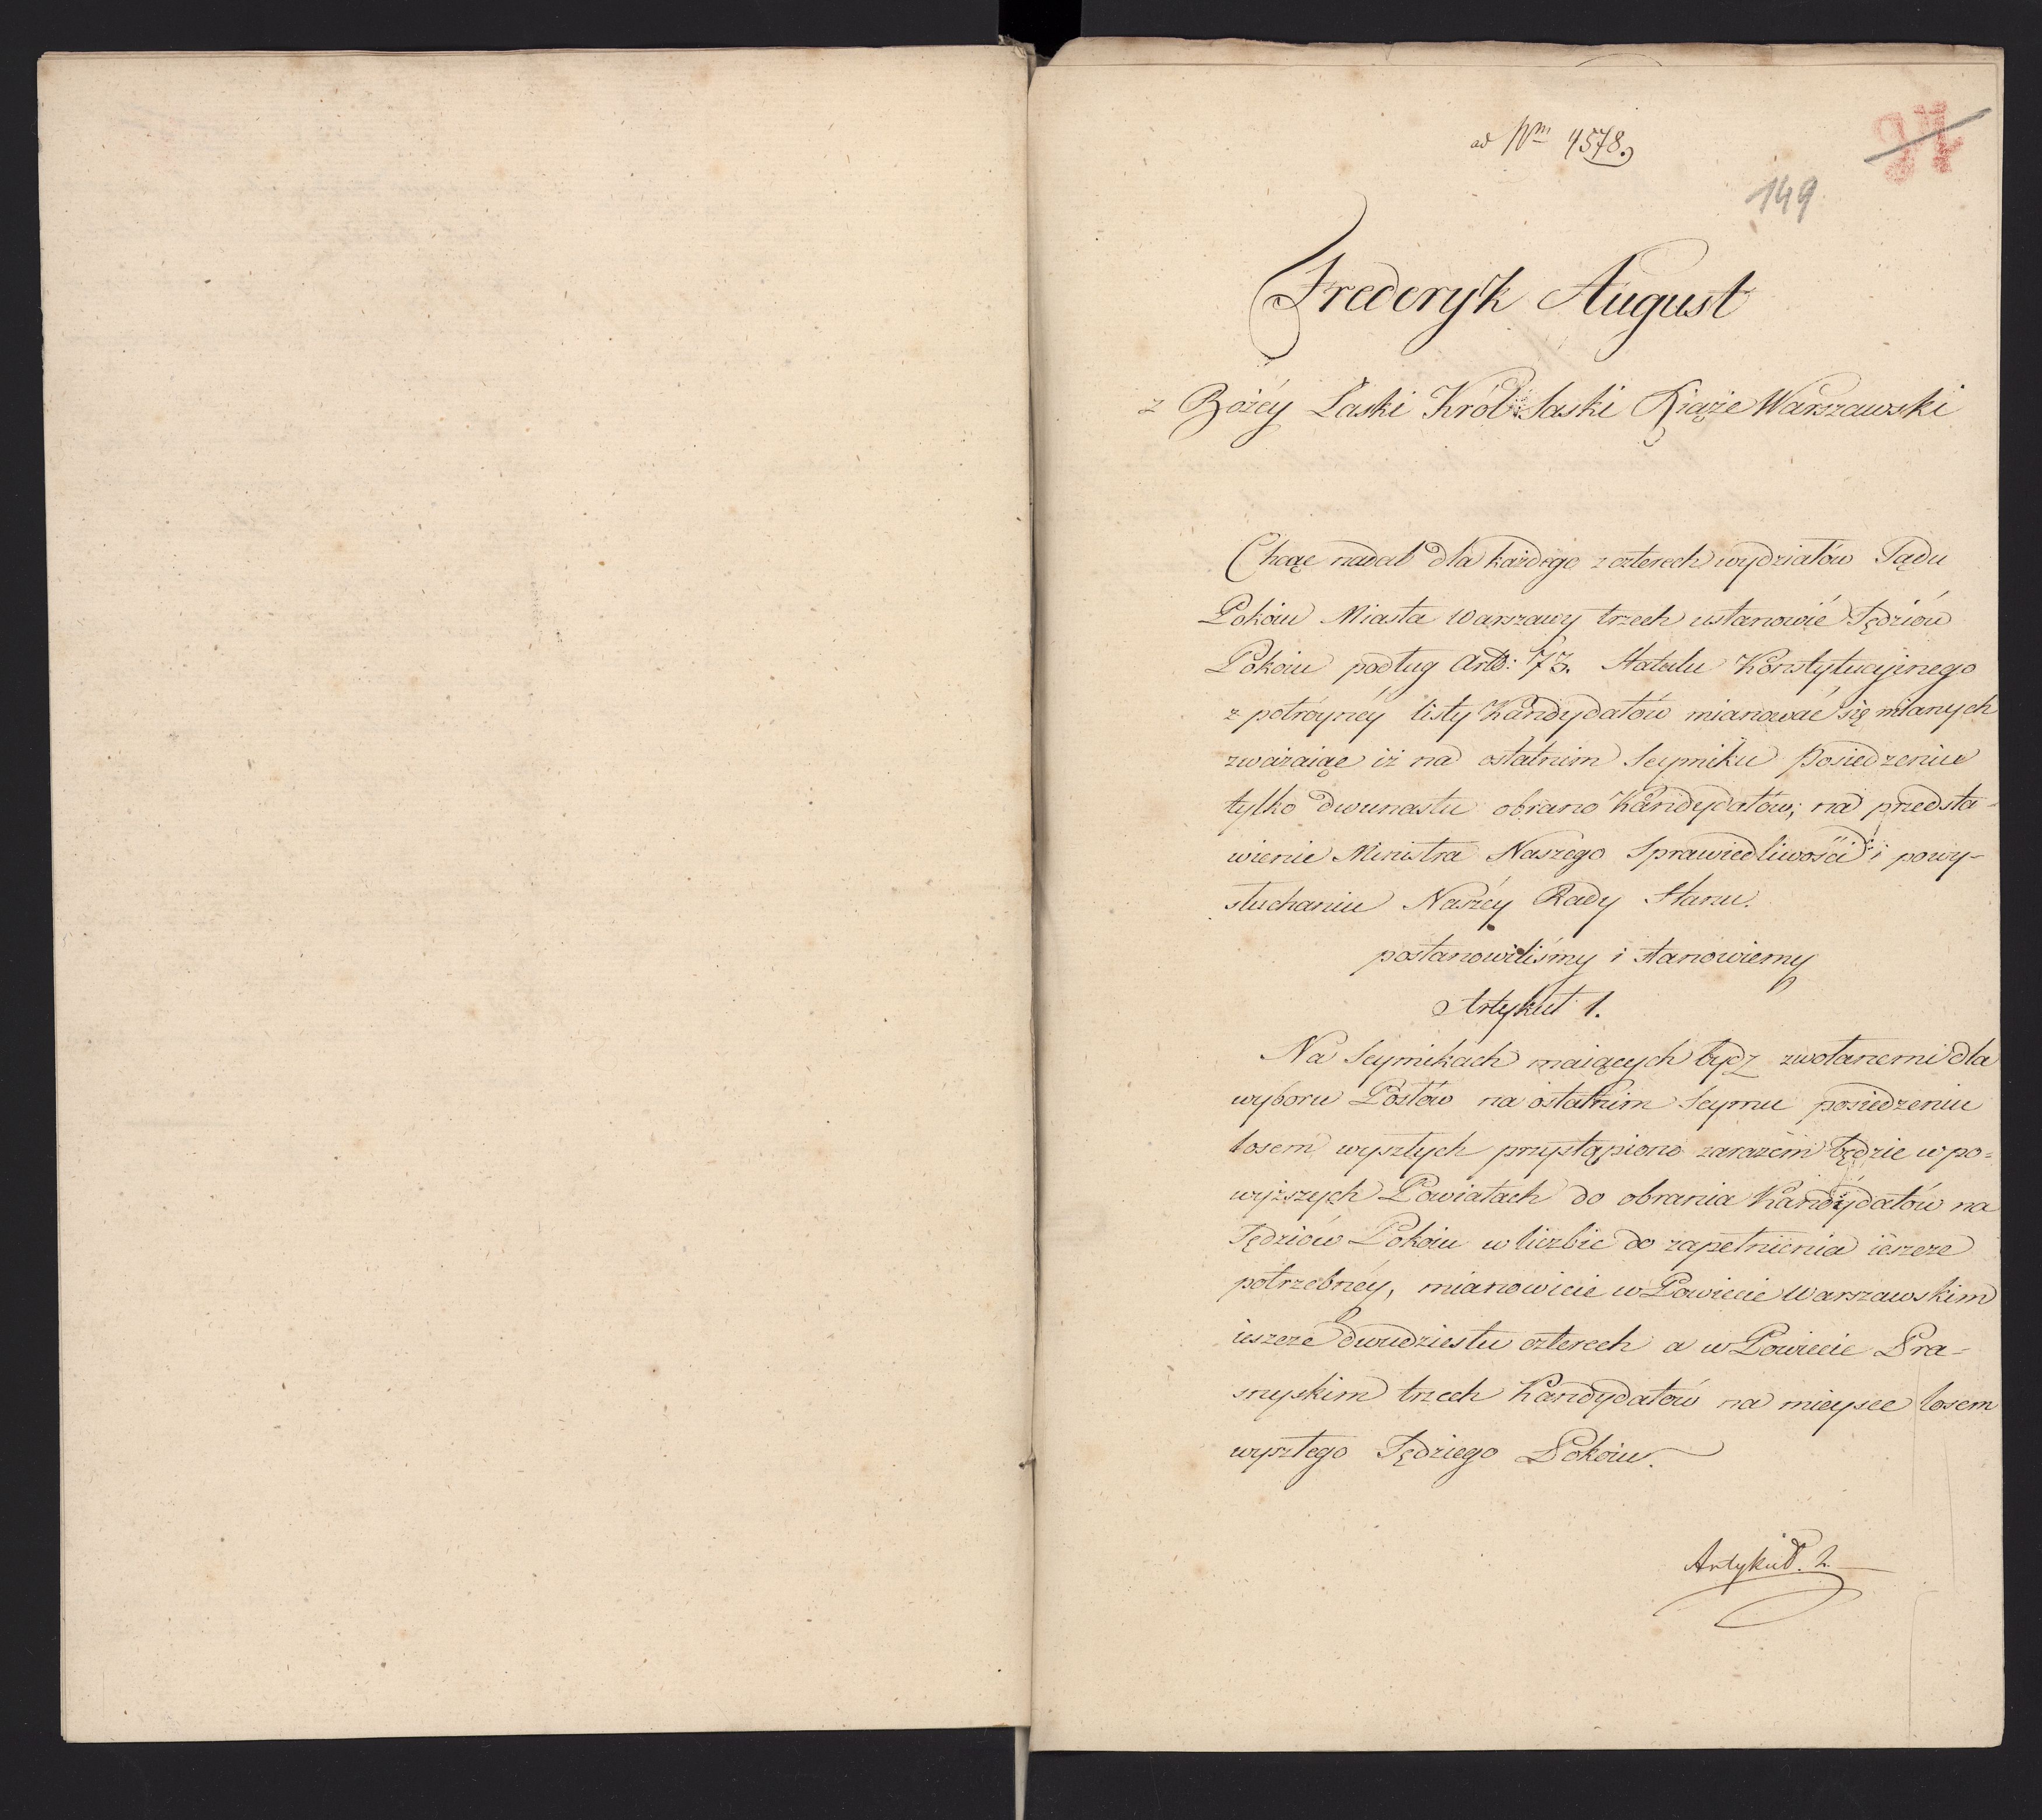 ad Nm 4578.
149
Frederyk August
z Bożéy Łaski Król Saski Xiąże Warszawski
Chcąc nadal dla każdego z czterech wydziałów Sądu
Pokoiu Miasta Warszawy trzech ustanowić Sędziów
Pokoiu podług Artt: 73. Statutu Konstytucyinego
z potróynéy listy Kandydatów mianować się mianych
zważaiąc iż na ostatnim Seymiku Posiedzeniu
tylko dwunastu obrano Kandydatów; na przedsta-
wienie Ministra Naszego Sprawiedliwości i powy-
słuchaniu Naszéy Rady Stanu.
postanowiliśmy i stanowiemy
Artykuł 1.
Na Seymikach maiących bydź zwołanemi dla
wyboru Posłów na ostatnim Seymu posiedzeniu
losem wyszłych przystąpiono zarazem będzie w po=
wyższych Powiatach do obrania Kandydatów na
Sędziów Pokoiu w liczbie do zapełnienia ieszcze
potrzebnéy, mianowicie w Powiecie Warszawskim
ieszcze dwudziestu czterech a w Powiecie Pra-
snyskim trzech Kandydatów na mieysce losem
wyszłego Sędziego Pokoiu.
Artykuł. 2.